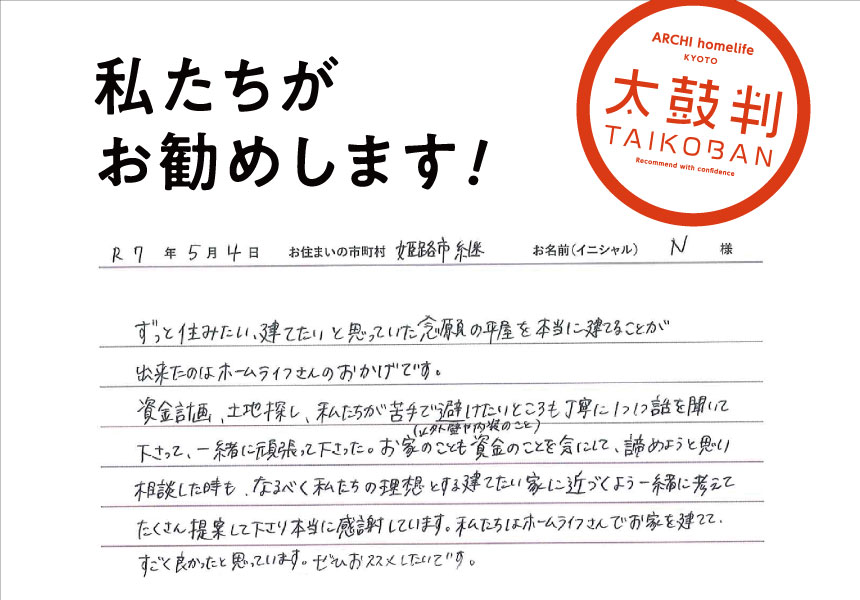 私たちが
お勧めします!
ARCHI homelife
KYOTO
太鼓判
TAIKOBAN
Recommend with confidence
R 7 年 5 月 4 日 お住まいの市町村 姫路市継 お名前(イニシャル) N 様
ずっと住みたい、建てたいと思っていた念願の平屋を本当に建てることが
出来たのはホームライフさんのおかげです。
資金計画、土地探し、私たちが苦手で避けたいところも丁寧に1つ1つ話を聞いて
下さって、一緒に頑張って下さった。お家のことも資金のことを気にして、諦めようと思い
(以外壁や内装のこと)
相談した時も、なるべく私たちの理想とする建てたい家に近づくよう一緒に考えて
たくさん提案して下さり本当に感謝しています。私たちはホームライフさんでお家を建てて、
すごく良かったと思っています。ぜひおススメしたいです。